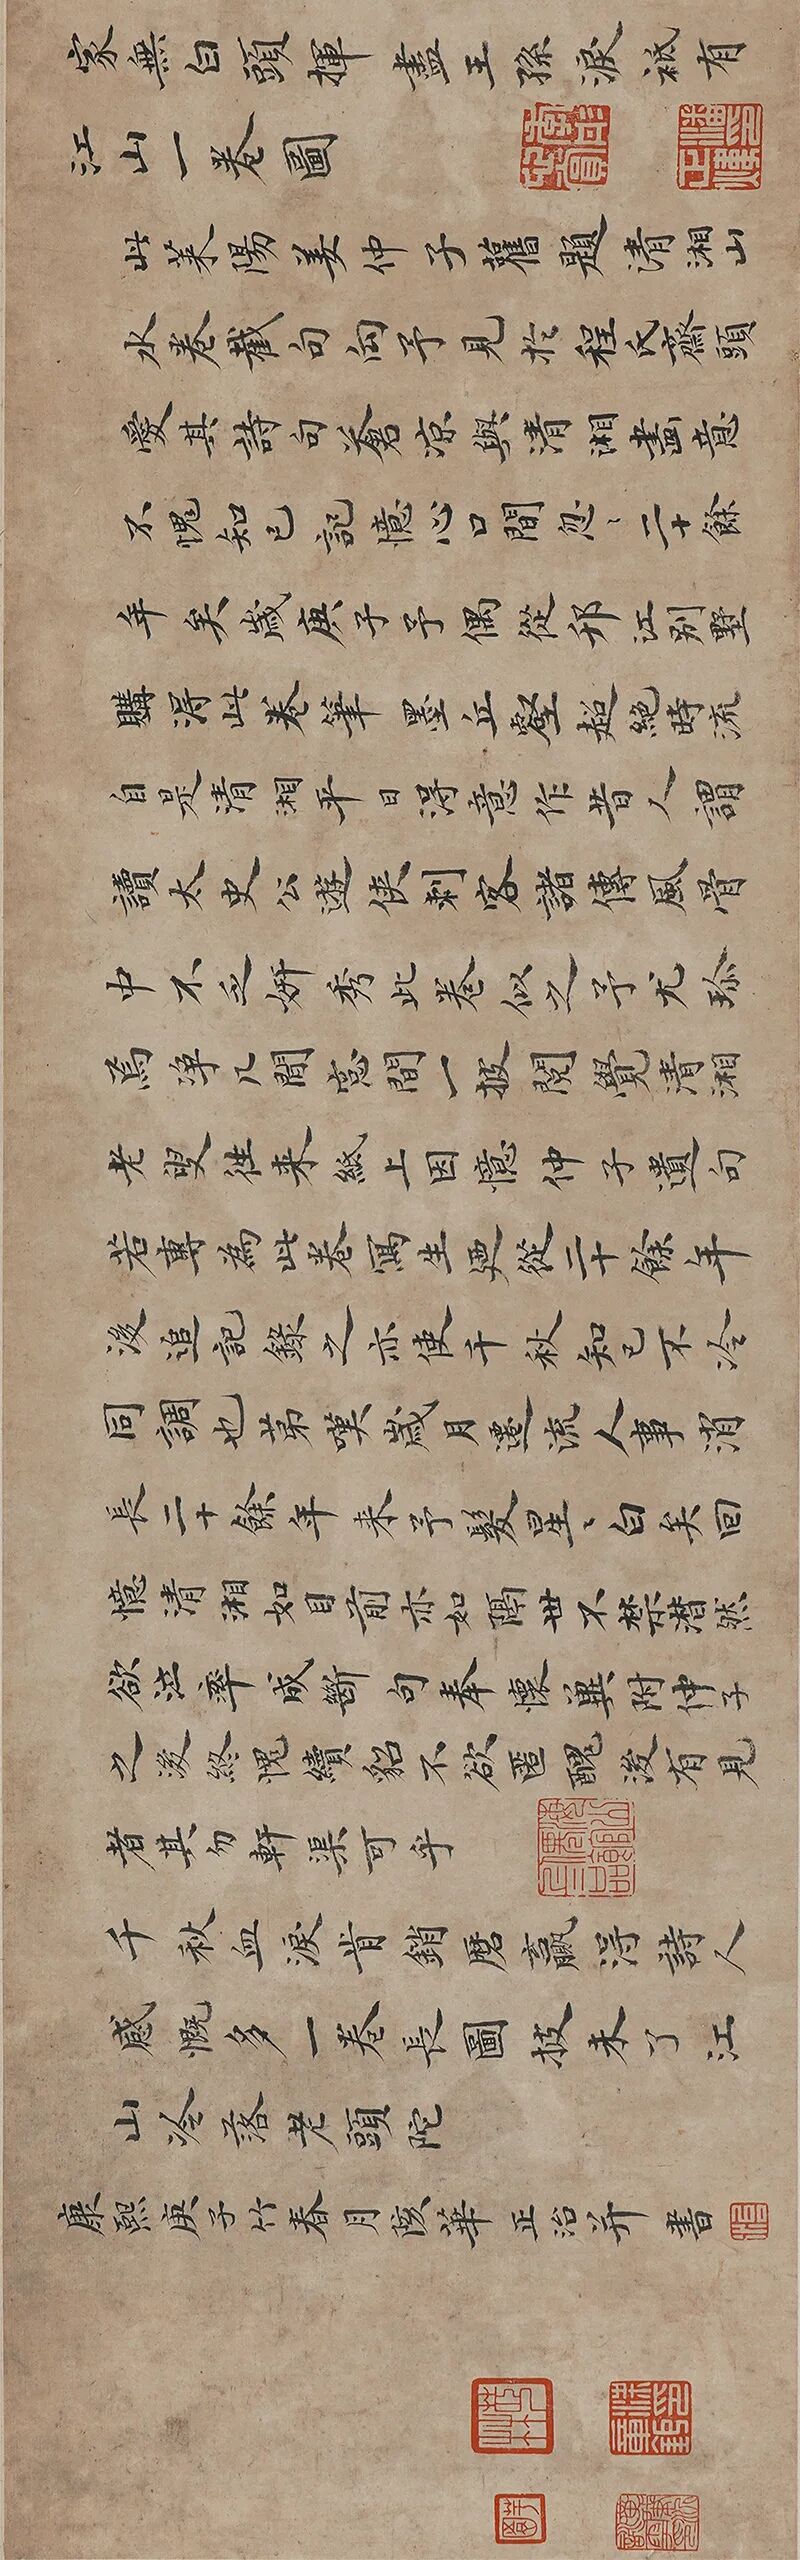 家無白頭揮盡王孫淚袛有
江山一卷圖
此萊陽姜仲子舊題清湘山
水卷截句向予見於程氏齋頭
愛其詩句蒼涼與清湘畫意
不愧知己記憶心口間忽〻二十餘
年矣歲庚子予偶從邗江別墅
購得此卷筆墨丘壑超絕時流
自是清湘平日得意作昔人謂
讀太史公遊俠刺客諸傳風骨
中不乏妍秀此卷似之予尤珍
焉淨几閒窓間一披閱覺清湘
老叟徃来紙上因憶仲子遺句
若專為此卷寫生迺從二十餘年
後追記錄之亦使千秋知己不冷
同調也苐嘆歲月遷流人事消
長二十餘年来予髮星〻白矣回
憶清湘如目前亦如隔世不禁潸然
欲泣率成斷句奉懷兼附仲子
之後終愧續貂不欲匿醜後有見
者其勿軒渠可乎
千秋血淚肯銷磨贏得詩人
感慨多一卷長圖披未了江
山冷落老頭陀
康熙庚子竹春月陔華正治并書